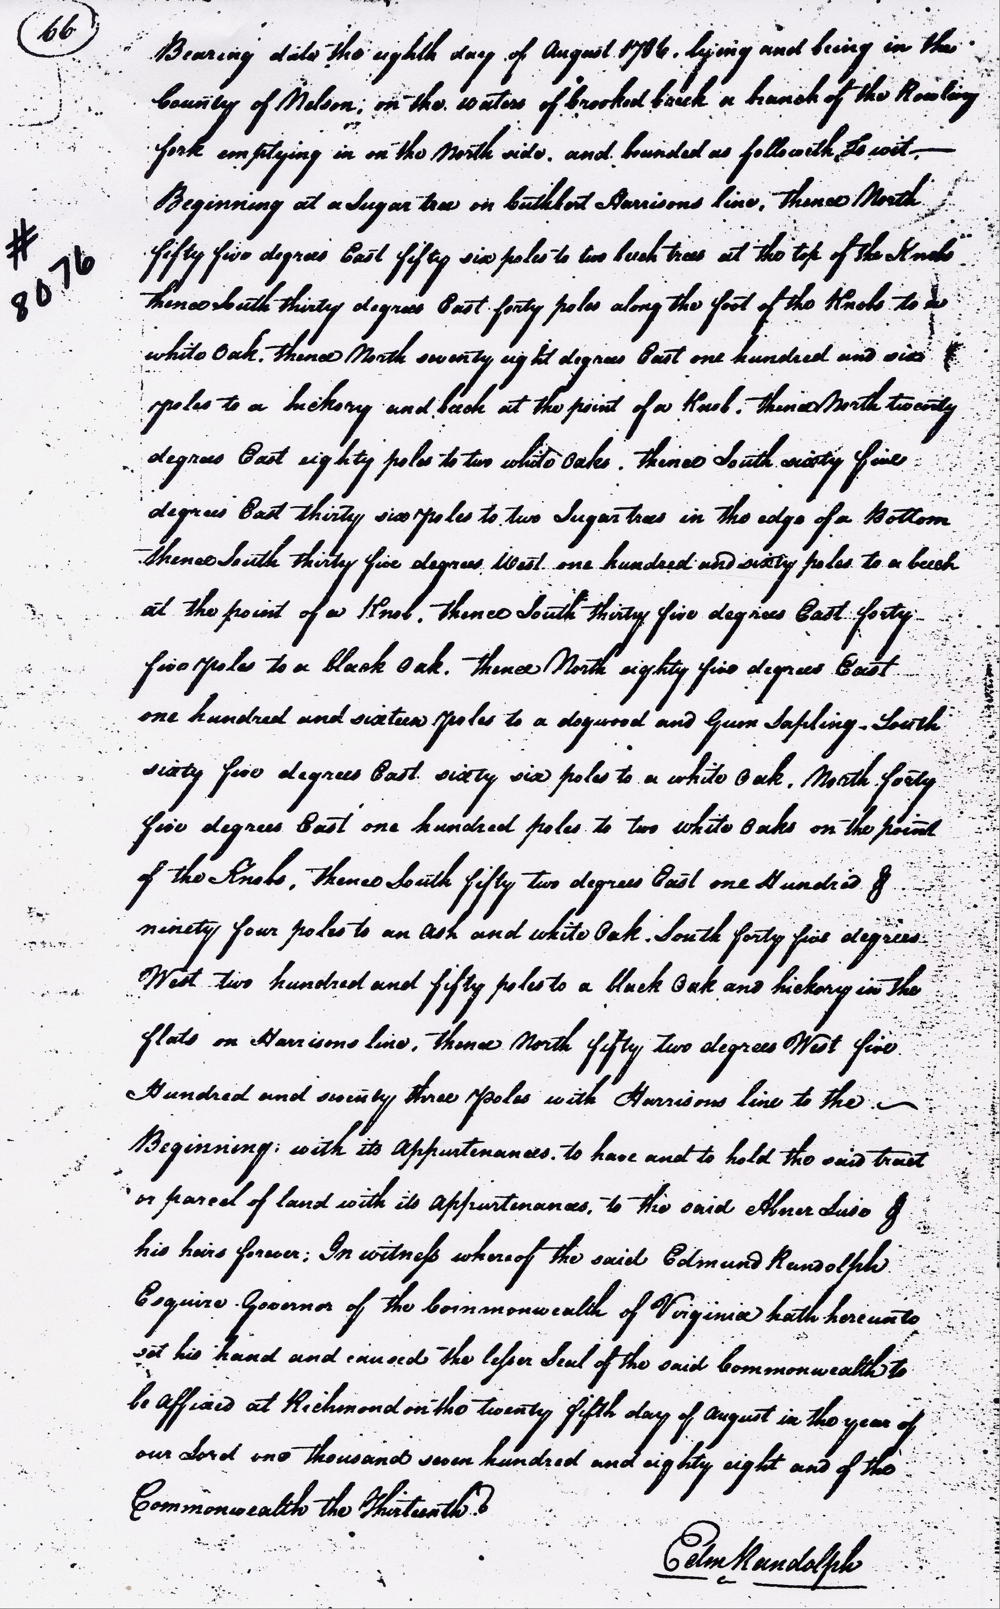 66
Bearing date the eighth day of August 1786. lying and being in the
County of Nelson, on the waters of Crooked Creek a branch of the Rowling
fork emptying in on the North side. and bounded as followeth, To wit,
# 8076
Beginning at a Sugar tree on Cuthbert Harrisons line, thence North
fifty five degrees East fifty six poles to two beech trees at the top of the Knobs
thence South thirty degrees East forty poles along the foot of the Knobs to a
white Oak, thence North seventy eight degrees East one hundred and six
poles to a hickory and beech at the point of a Knob, thence North twenty
degrees East eighty poles to two white Oaks, thence South sixty five
degrees East thirty six poles to two Sugar trees in the edge of a Bottom
thence South thirty five degrees West one hundred and sixty poles to a beech
at the point of a Knob, thence South thirty five degrees East forty
five poles to a black Oak, thence North eighty five degrees East
one hundred and sixteen poles to a dogwood and Gum Sapling, South
sixty five degrees East sixty six poles to a white Oak, North forty
five degrees East one hundred poles to two white Oaks on the point
of the Knobs, thence South fifty two degrees East one Hundred &
ninety four poles to an Ash and white Oak, South forty five degrees
West two hundred and fifty poles to a black Oak and hickory in the
flats on Harrisons line, thence North fifty two degrees West five
Hundred and seventy three poles with Harrisons line to the
Beginning: with its Appurtenances, to have and to hold the said tract
or parcel of land with its appurtenances, to the said Abner &
his heirs forever; In witness whereof the said Edmund Randolph
Esquire Governor of the Commonwealth of Virginia hath hereunto
set his hand and caused the lesser Seal of the said Commonwealth to
be Affixed at Richmond on the twenty fifth day of August in the year of
our Lord one thousand seven hundred and eighty eight and of the
Commonwealth the Thirteenth
Edm Randolph